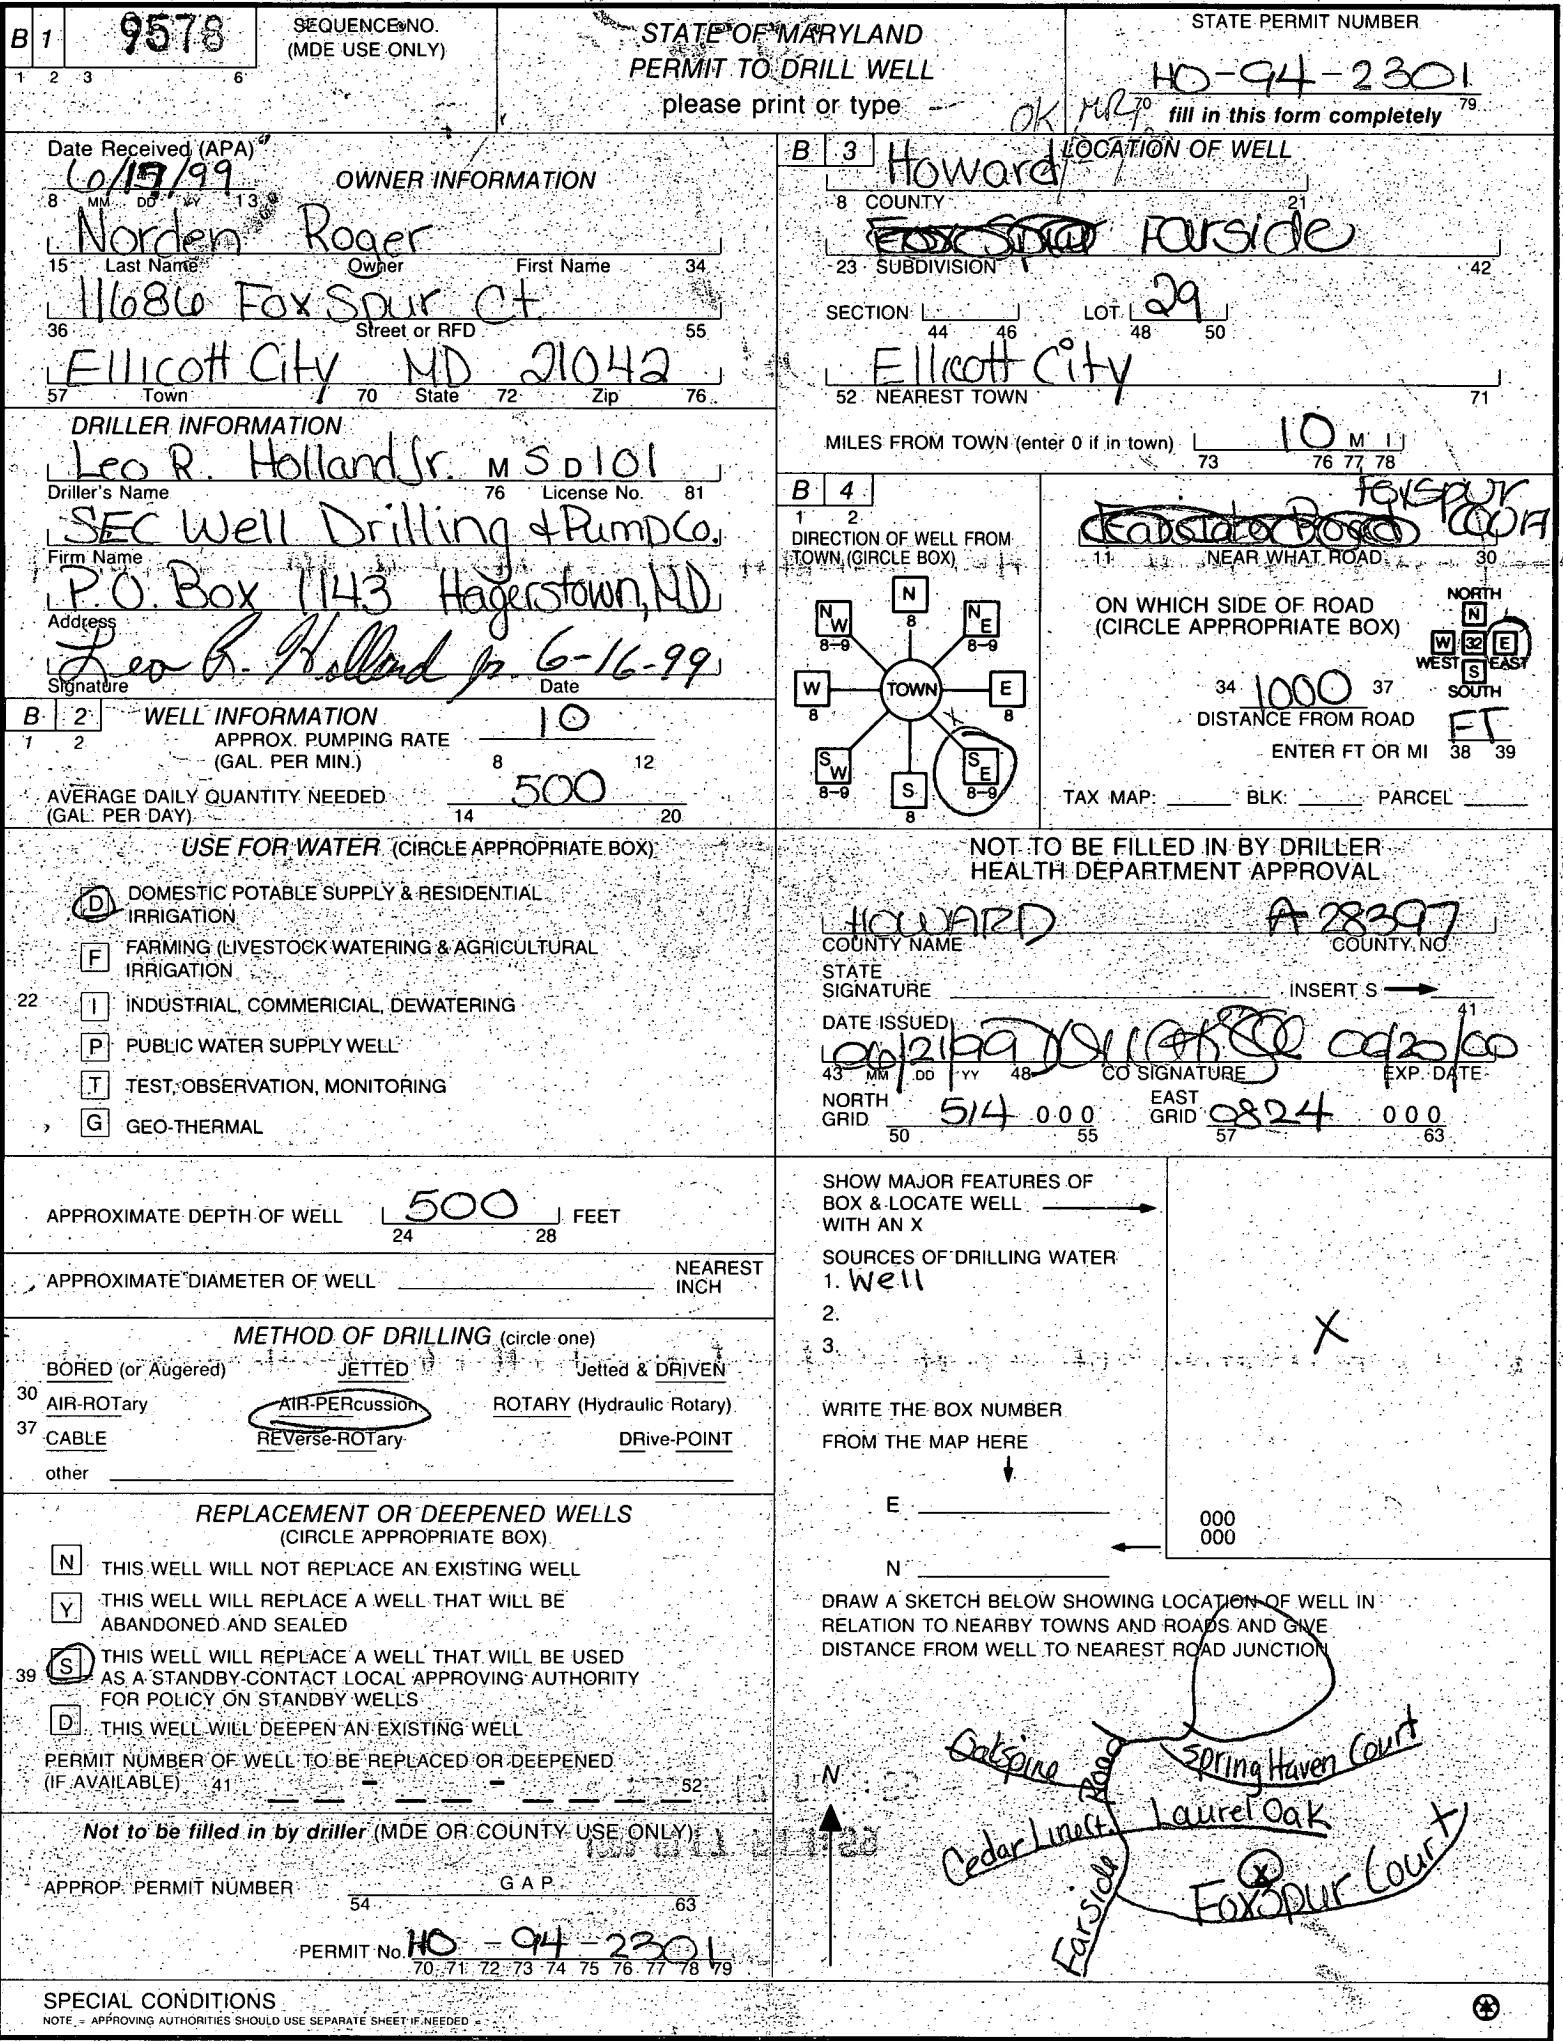 B 1 9578
1 2 3 6
SEQUENCE NO.
(MDE USE ONLY)
STATE OF MARYLAND
PERMIT TO DRILL WELL
please print or type
STATE PERMIT NUMBER
HO-94-2301
70 79
fill in this form completely
OK
Date Received (APA)
6/17/99
8 MM DD YY 13
OWNER INFORMATION
Norden Roger
15 Last Name Owner First Name 34
11686 Fox Spur Ct.
36 Street or RFD 55
Ellicott City MD 21042
57 Town 70 State 72 Zip 76
DRILLER INFORMATION
Leo R. Holland Jr. M S D 101
Driller's Name 76 License No. 81
SEC Well Drilling & Pump Co.
Firm Name
P.O. Box 1143 Hagerstown, MD
Address
Leo R. Holland Jr. 6-16-99
Signature Date
B 2 WELL INFORMATION
1 2
APPROX. PUMPING RATE 10
(GAL. PER MIN.) 8 12
AVERAGE DAILY QUANTITY NEEDED 500
(GAL. PER DAY) 14 20
USE FOR WATER (CIRCLE APPROPRIATE BOX)
D DOMESTIC POTABLE SUPPLY & RESIDENTIAL
IRRIGATION
F FARMING (LIVESTOCK WATERING & AGRICULTURAL
IRRIGATION
22 I INDUSTRIAL, COMMERICIAL, DEWATERING
P PUBLIC WATER SUPPLY WELL
T TEST, OBSERVATION, MONITORING
G GEO-THERMAL
APPROXIMATE DEPTH OF WELL 500 FEET
24 28
APPROXIMATE DIAMETER OF WELL NEAREST
INCH
METHOD OF DRILLING (circle one)
BORED (or Augered) JETTED Jetted & DRIVEN
30 AIR-ROTary AIR-PERcussion ROTARY (Hydraulic Rotary)
37 CABLE REVerse-ROTary DRive-POINT
other
REPLACEMENT OR DEEPENED WELLS
(CIRCLE APPROPRIATE BOX)
N THIS WELL WILL NOT REPLACE AN EXISTING WELL
Y THIS WELL WILL REPLACE A WELL THAT WILL BE
ABANDONED AND SEALED
39 S THIS WELL WILL REPLACE A WELL THAT WILL BE USED
AS A STANDBY-CONTACT LOCAL APPROVING AUTHORITY
FOR POLICY ON STANDBY WELLS
D THIS WELL WILL DEEPEN AN EXISTING WELL
PERMIT NUMBER OF WELL TO BE REPLACED OR DEEPENED
(IF AVAILABLE) 41 - - 52
Not to be filled in by driller (MDE OR COUNTY USE ONLY)
APPROP. PERMIT NUMBER G A P
54 63
PERMIT No. HO - 94 - 2301
70 71 72 73 74 75 76 77 78 79
SPECIAL CONDITIONS
NOTE - APPROVING AUTHORITIES SHOULD USE SEPARATE SHEET IF NEEDED -
B 3 LOCATION OF WELL
Howard
8 COUNTY 21
Fox Spur Farside
23 SUBDIVISION 42
SECTION LOT 29
44 46 48 50
Ellicott City
52 NEAREST TOWN 71
MILES FROM TOWN (enter 0 if in town) 10 M I
73 76 77 78
B 4
1 2
DIRECTION OF WELL FROM
TOWN (CIRCLE BOX)
N
8
N W N E
8-9 8-9
W TOWN E
8 8
X
S W S E
8-9 8-9
S
8
Foxspur
Farside Road Court
11 NEAR WHAT ROAD 30
ON WHICH SIDE OF ROAD
(CIRCLE APPROPRIATE BOX)
NORTH
N
W 32 E
WEST EAST
S
SOUTH
34 1000 37
DISTANCE FROM ROAD
FT
ENTER FT OR MI 38 39
TAX MAP: BLK: PARCEL
NOT TO BE FILLED IN BY DRILLER
HEALTH DEPARTMENT APPROVAL
HOWARD A 28397
COUNTY NAME COUNTY NO
STATE
SIGNATURE INSERT S
41
DATE ISSUED
06/21/99 06/20/00
43 MM DD YY 48 CO SIGNATURE EXP. DATE
NORTH
GRID 514 0 0 0
50 55
EAST
GRID 0824 0 0 0
57 63
SHOW MAJOR FEATURES OF
BOX & LOCATE WELL
WITH AN X
SOURCES OF DRILLING WATER
1. Well
2.
3.
X
WRITE THE BOX NUMBER
FROM THE MAP HERE
E
N
000
000
DRAW A SKETCH BELOW SHOWING LOCATION OF WELL IN
RELATION TO NEARBY TOWNS AND ROADS AND GIVE
DISTANCE FROM WELL TO NEAREST ROAD JUNCTION
N
Oakspire
Road
Spring Haven Court
Cedar Line Ct.
Laurel Oak
Farside
X
Foxspur Court
X